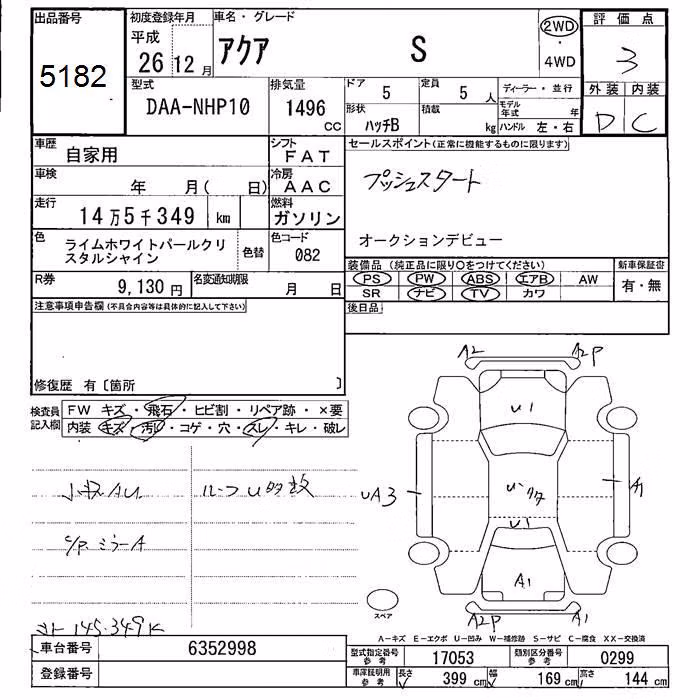 出品番号
5182
初度登録年月
平成
26 12 月
車名・グレード
アクア S
2WD
・
4WD
評価点
3
外装 内装
D C
型式
DAA-NHP10
排気量
1496 CC
ドア 5
定員 5 人
形状 ハッチB
積載 kg
ディーラー・並行
モデル年式 年
ハンドル 左・右
車歴 自家用
シフト FAT
車検 年 月( 日)
冷房 AAC
走行 14万5千349 km
燃料 ガソリン
色 ライムホワイトパールクリスタルシャイン
色替
色コード 082
R券 9,130 円
名変通知期限 月 日
セールスポイント(正常に機能するものに限ります)
プッシュスタート
オークションデビュー
装備品 (純正品に限り○をつけてください)
PS PW ABS エアB AW
SR ナビ TV カワ
新車保証書
有・無
後日品
注意事項申告欄(不具合内容等は具体的に記入して下さい)
修復歴 有〔箇所 〕
検査員記入欄
FW キズ・飛石・ヒビ割・リペア跡・×要
内装 キズ・汚れ・コゲ・穴・スレ・キレ・破レ
小キズAU
ルーフU多数
C/P ミラーA
メーター145.349K
A2 A2P
U1
UA3
A1
U1
A1
A2P A1
スペア
A-キズ E-エクボ U-凹み W-補修跡 S-サビ C-腐食 XX-交換済
車台番号 6352998
登録番号
型式指定番号 参考 17053
類別区分番号 参考 0299
車庫証明用 参考 長さ 399 cm 幅 169 cm 高さ 144 cm